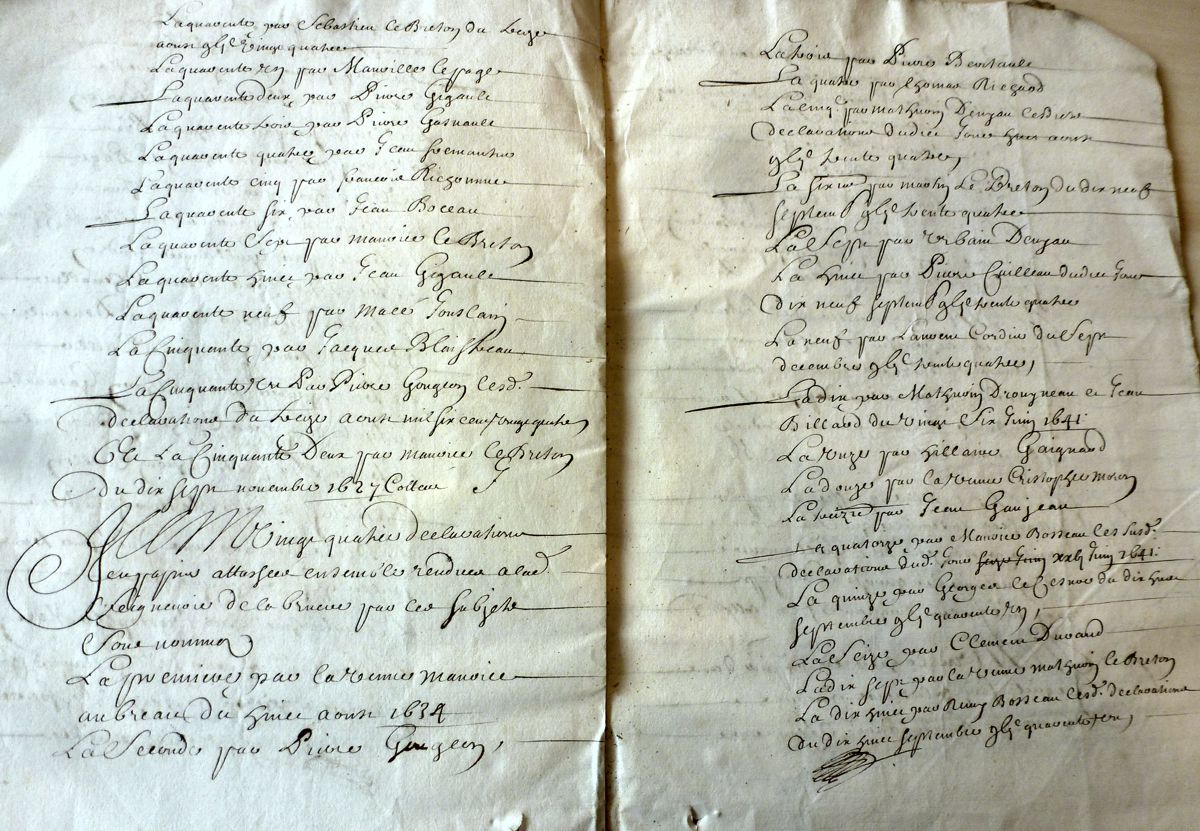 La quarente par Sebastien le Breton du seze
aoust gbjc vingt quatre
La quarente un par Maurille le page
La quarente deux par Pierre Gigault
La quarente trois par Pierre Gasnault
La quarente quatre par Jean
La quarente cinq par francois Richomme
La quarente six par Jean Boceau
La quarente sept par maurice le Breton
La quarente huict par Jean Gigault
La quarente neuf par macé
La Cinquante par Jacques
La Cinquante un Par Pierre Gougeon lesd.
declarations du seize aoust mil six cent vingt quatre
Et La Cinquante Deux par maurice le Breton
du dix sept novembre 1627 Cottée
vingt quatre declarations
en papier attachees ensemble rendues a lad.
seigneurie de la par les subjets
sous nommez
La premiere par la veuve maurice
aubreau du huict aoust 1634
La Seconde par Pierre Gougeon,
La trois par Pierre
La quatre par thomas Richard
La cinq. par mathurin Denyau lesdites
declarations dudict jour huict aoust
gbjc trente quatre,
La sixiesme par martin Le Breton du dix neuf
septemb gbjc trente quatre
La Sept par urbain Denyau
La huict par Pierre Cailleau dudict jour
dix neuf septemb gbjc trente quatre
La neuf par Laurent Cordin du sept
decembre gbjc trente quatre,
La dix par Mathurin Drougneau et Jean
Billard du vingt Six Juin 1641
La unze par hillaire Goignard
La douze par la veuve Christophle moron
La treize par Jean Goujeau
La quatorze par Maurice Bosseau les susd.
declarations dud. jour Juin xxbj Juin 1641
La quinze par Georges le du dix huict
septembre gbjc quarente un,
La Seize par Clement Durand
La dix sept par la veuve mathurin le Breton
La dix huict par Remy Bosseau lesd. declarations
du dix huict septembre gbjc quarente un,